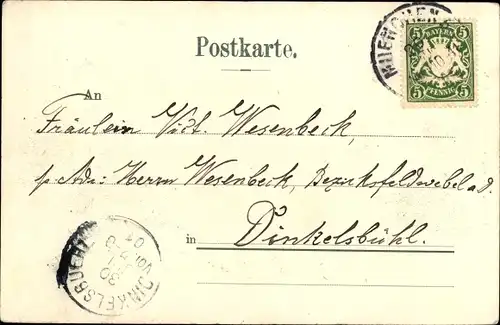 Postkarte.
MUENCHEN
BAYERN
5 5
5 PFENNIG 5
An
Fräulein Vict. Wesenbeck,
p. Adr: Herrn Wesenbeck, Bezirksfeldwebel a.D.
in Dinkelsbühl.
DINKELSBUEHL